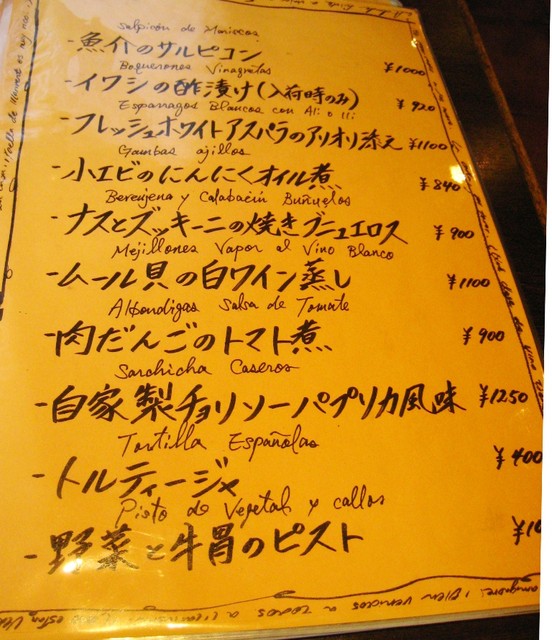 Salpicon de Mariscos
-魚介のサルピコン ¥1000
Boquerones Vinagretas
-イワシの酢漬け(入荷時のみ) ¥920
Esparragos Blancos con Ali o li
-フレッシュホワイトアスパラのアリオリ添え ¥1100
Gambas ajillos
-小エビのにんにくオイル煮 ¥840
Berenjena y Calabacin Buñuelos
-ナスとズッキーニの焼きブニュエロス ¥900
Mejillones Vapor al Vino Blanco
-ムール貝の白ワイン蒸し ¥1100
Albondigas Salsa de Tomate
-肉だんごのトマト煮 ¥900
Sarchicha Caseros
-自家製チョリソーパプリカ風味 ¥1250
Tortilla Españolas
-トルティージャ ¥400
Pisto de Vegetal y callos
-野菜と牛胃のピスト